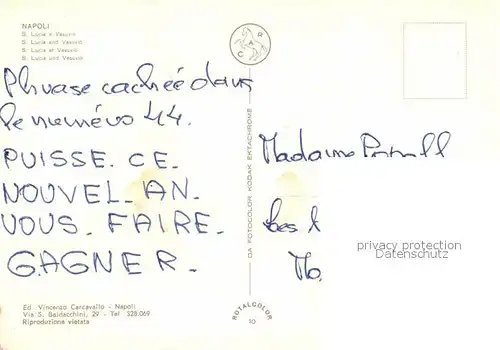 NAPOLI
S. Lucia e Vesuvio
S. Lucia and Vesuvio
S. Lucia et Vesuvio
S. Lucia und Vesuvio
C A R
Phrase cachée dans
le numéro 44.
PUISSE. CE.
NOUVEL. AN.
VOUS. FAIRE.
GAGNER.
Madame
privacy protection
Datenschutz
DA FOTOCOLOR KODAK EKTACHROME
Ed. Vincenzo Carcavallo - Napoli
Via S. Baldacchini, 29 - Tel 328.069
Riproduzione vietata
ROTALCOLOR
10